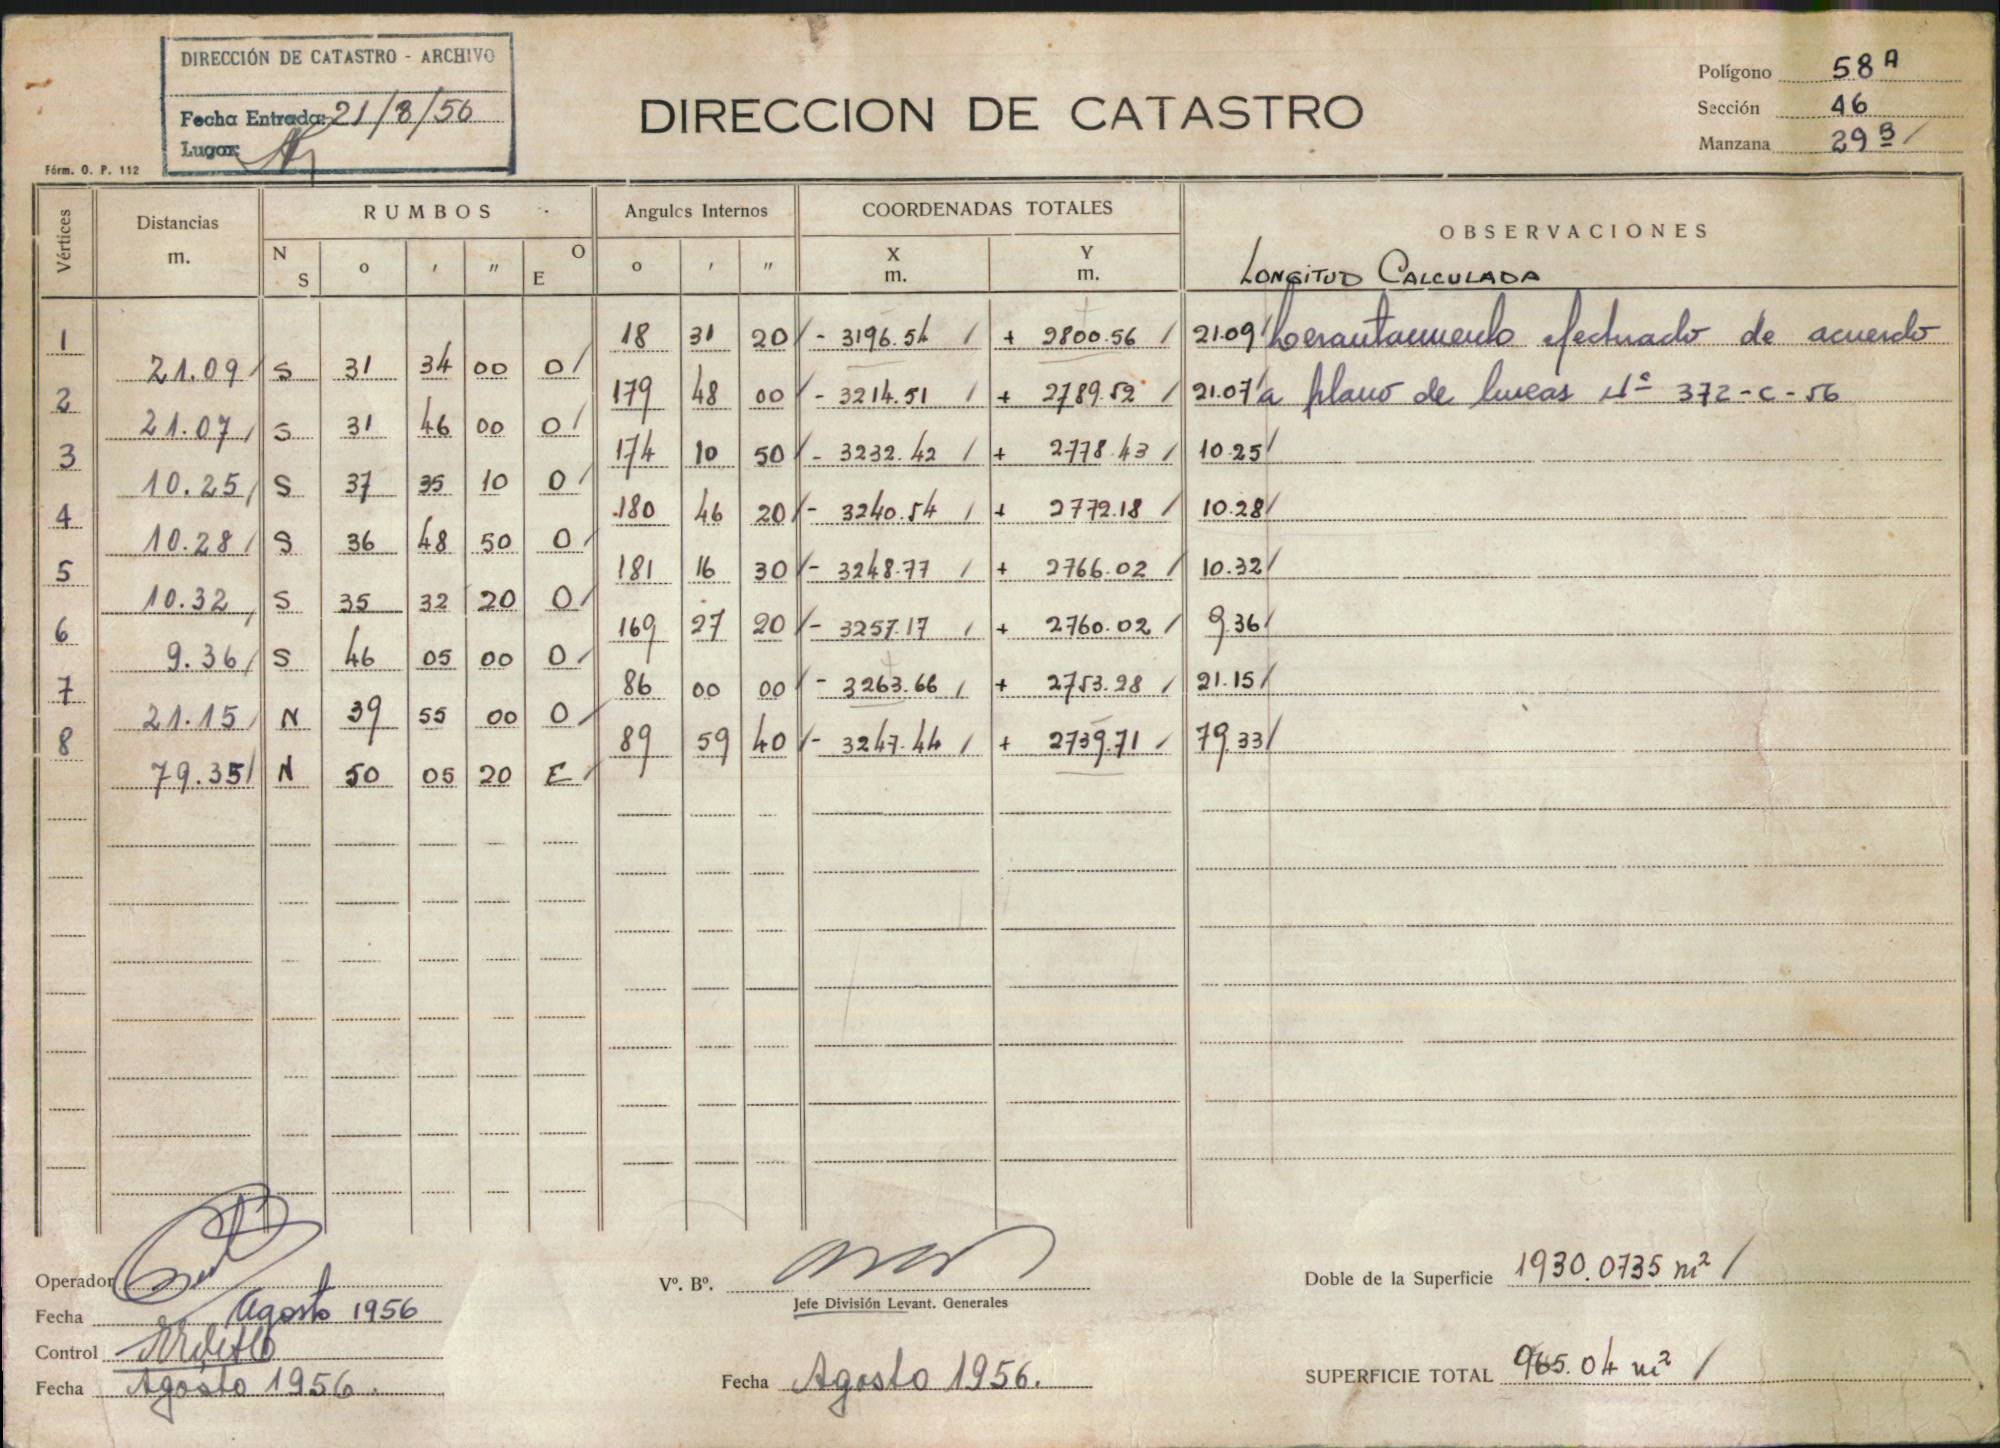 DIRECCIÓN DE CATASTRO - ARCHIVO
Fecha Entrada: 21/8/56
Lugar:
Fórm. O. P. 112
DIRECCION DE CATASTRO
Polígono 58 A
Sección 46
Manzana 29 B /
Vértices Distancias m. RUMBOS Angulos Internos COORDENADAS TOTALES OBSERVACIONES
N S o ' " O E o ' " X m. Y m. LONGITUD CALCULADA
1 18 31 20 / - 3196.54 / + 2800.56 / 21.09 / Levantamiento efectuado de acuerdo
21.09 / S 31 34 00 O /
2 179 48 00 / - 3214.51 / + 2789.52 / 21.07 / a plano de lineas Nº 372-C-56
21.07 / S 31 46 00 O /
3 174 10 50 / - 3232.42 / + 2778.43 / 10.25 /
10.25 / S 37 35 10 O /
4 180 46 20 / - 3240.54 / + 2772.18 / 10.28 /
10.28 / S 36 48 50 O /
5 181 16 30 / - 3248.77 / + 2766.02 / 10.32 /
10.32 / S 35 32 20 O /
6 169 27 20 / - 3257.17 / + 2760.02 / 9.36 /
9.36 / S 46 05 00 O /
7 86 00 00 / - 3263.66 / + 2753.28 / 21.15 /
21.15 / N 39 55 00 O /
8 89 59 40 / - 3247.44 / + 2739.71 / 79.33 /
79.35 / N 50 05 20 E /
Operador
Fecha Agosto 1956
Control
Fecha Agosto 1956.
Vº. Bº.
Jefe División Levant. Generales
Fecha Agosto 1956.
Doble de la Superficie 1930.0735 m² /
SUPERFICIE TOTAL 965.04 m² /